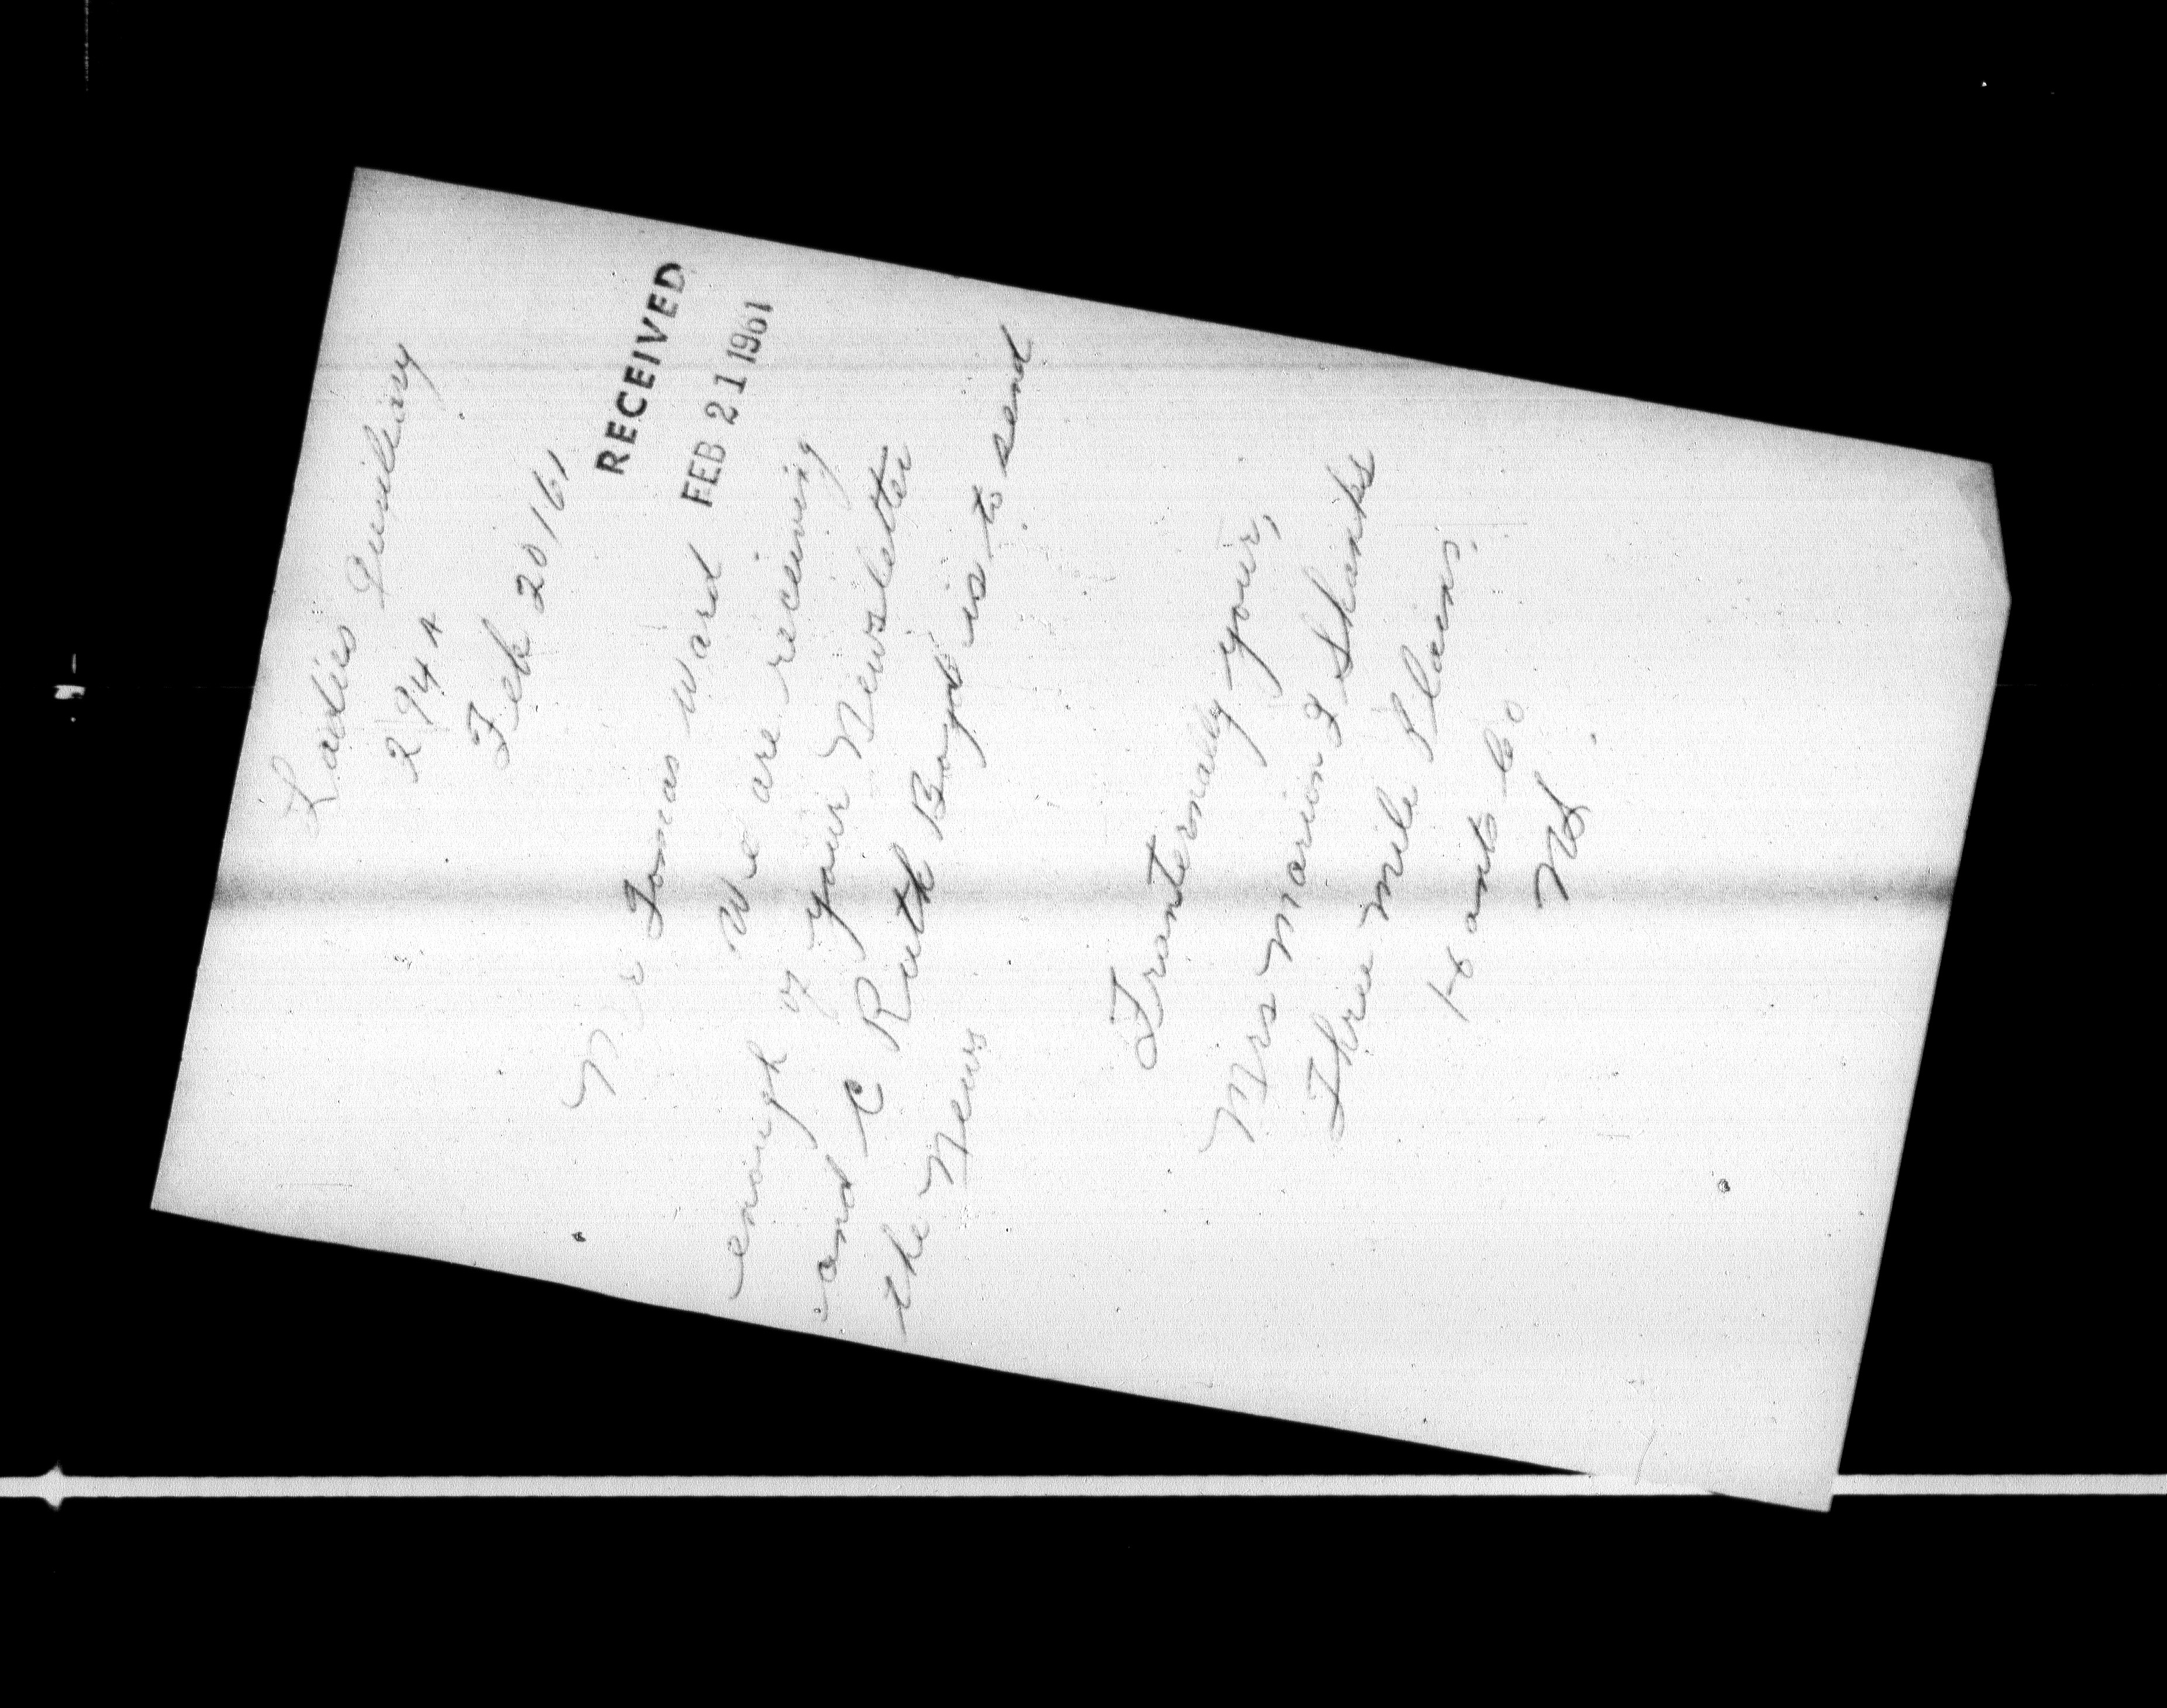 Ladies Auxiliary
294 A
Feb 20/61
RECEIVED
FEB 21 1961
Mr Tomas Ward
We are receiving
enough of your Newsletter
and C Ruth Boyd is to send
the News
Franternally your,
Mrs Marion I Shanks
Three Mile Plains.
Hants Co
NS.